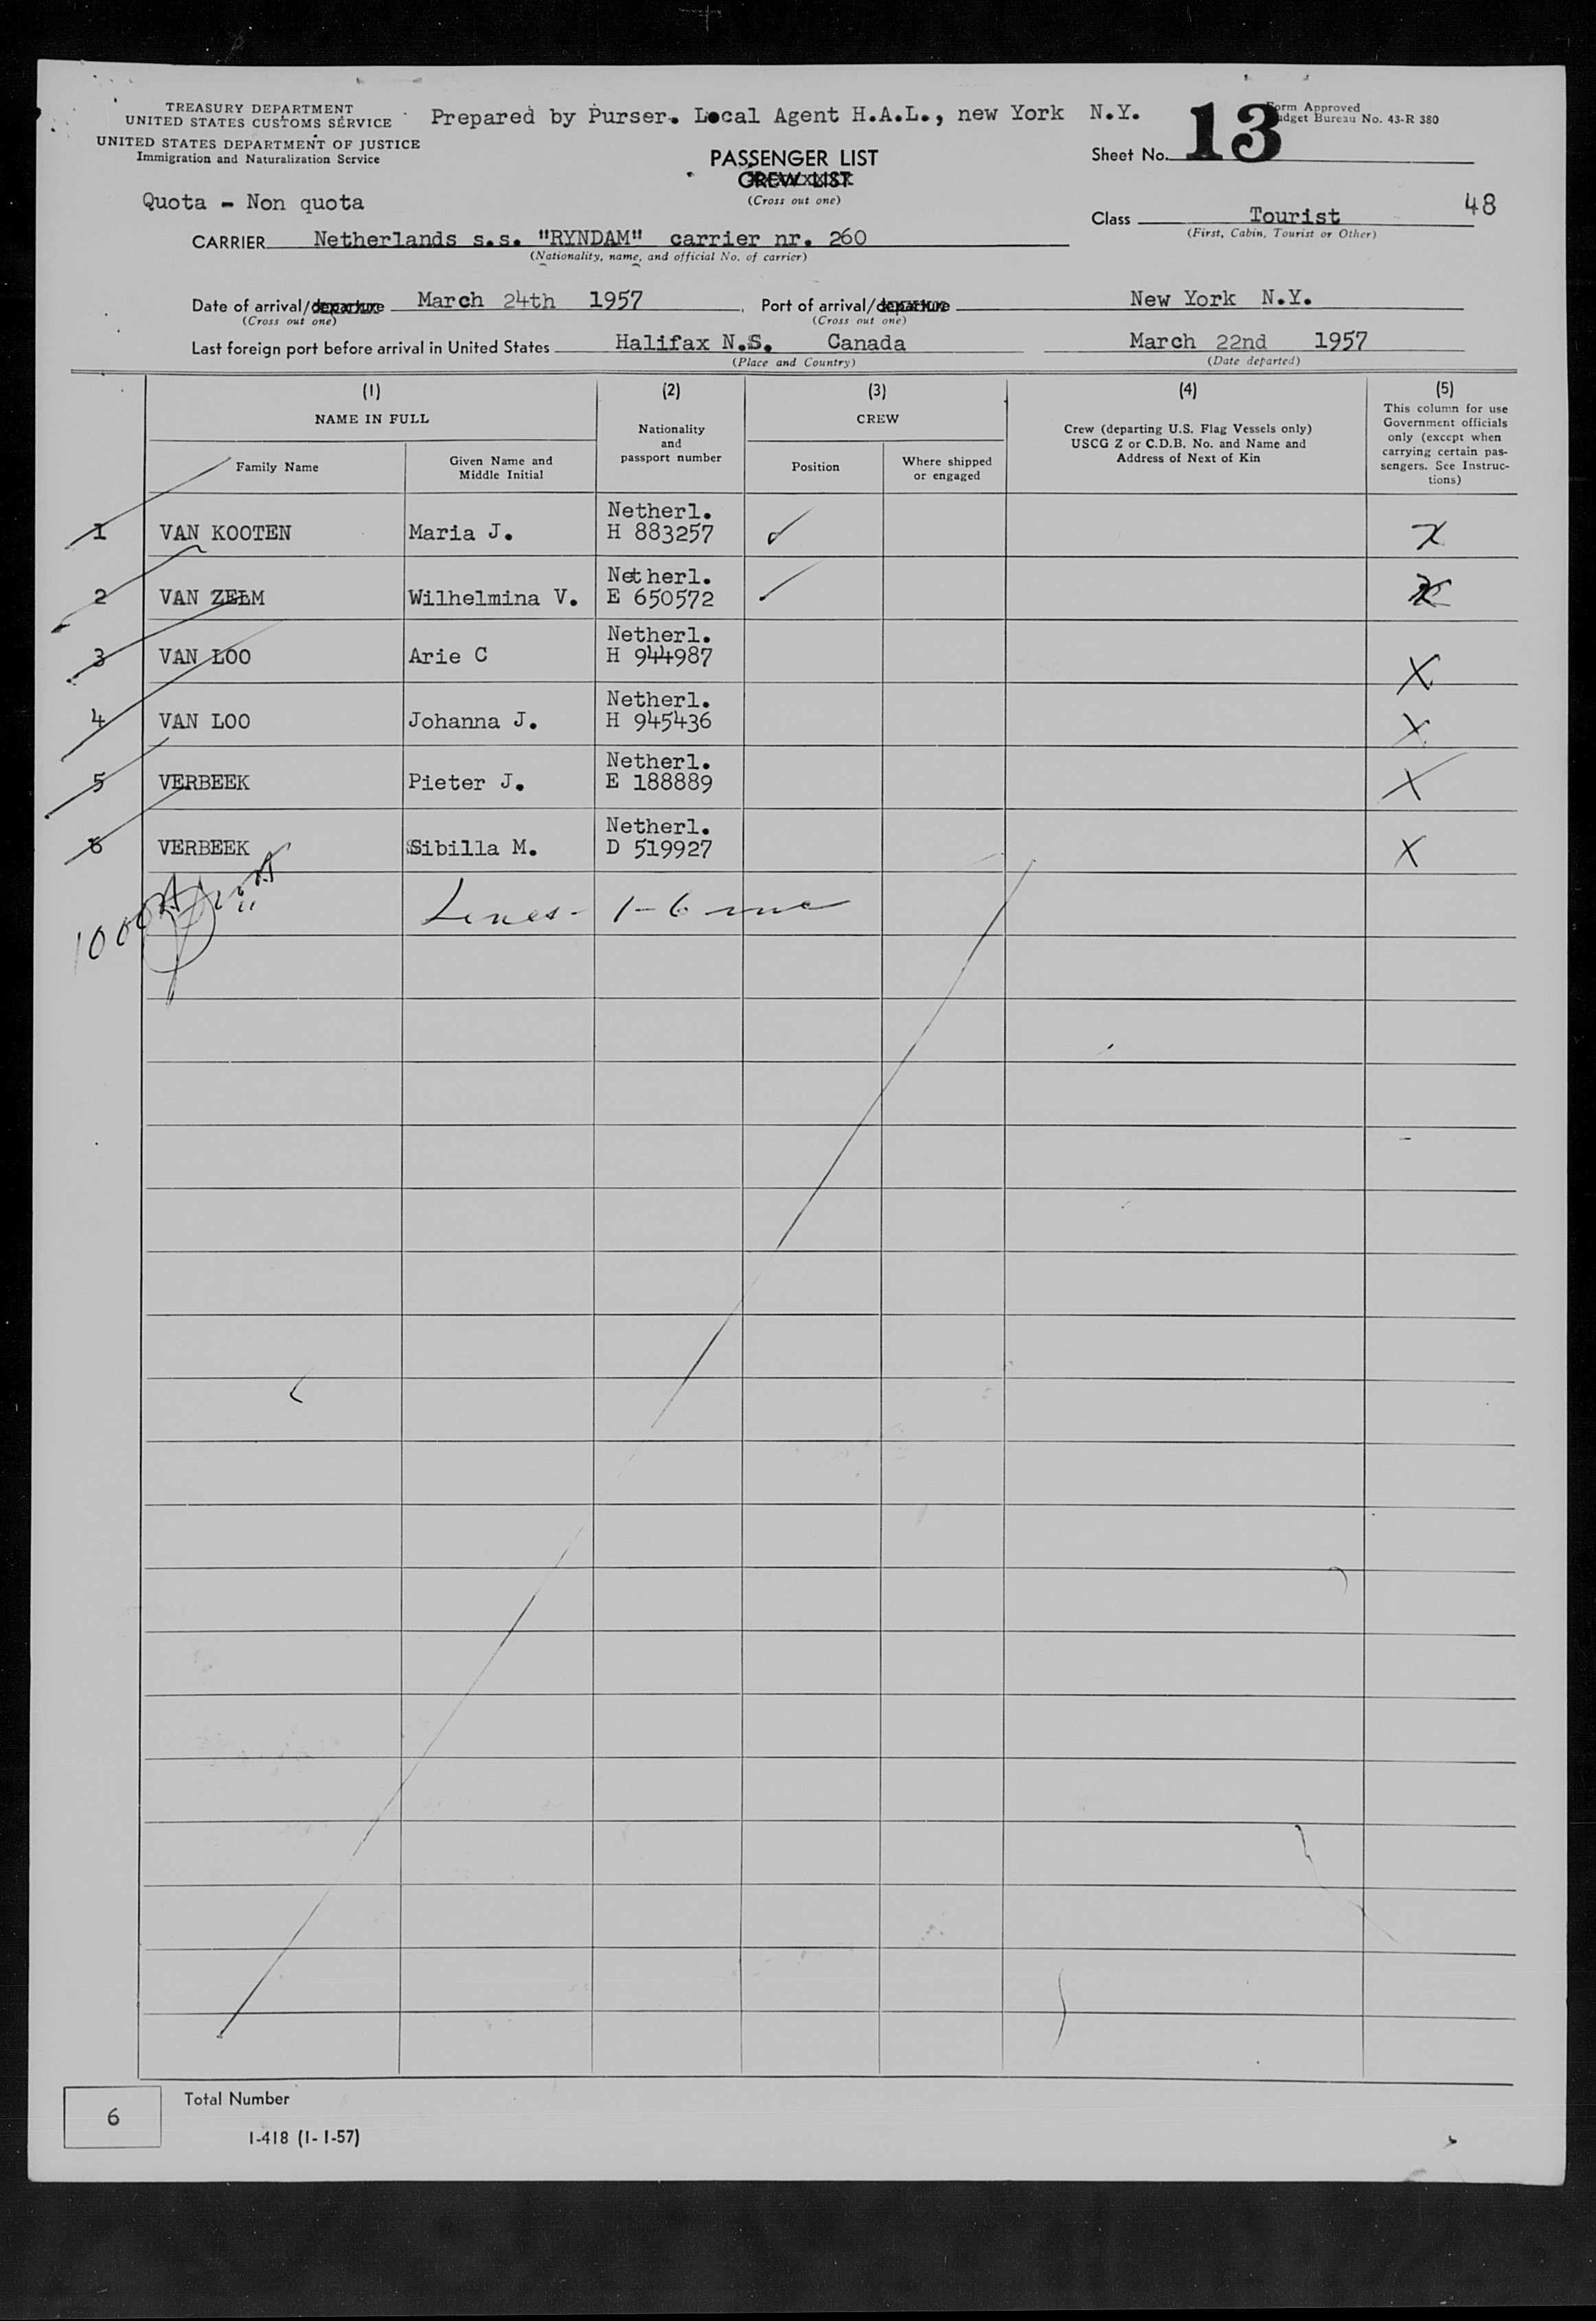 TREASURY DEPARTMENT
UNITED STATES CUSTOMS SERVICE
UNITED STATES DEPARTMENT OF JUSTICE
Immigration and Naturalization Service
Prepared by Purser. Local Agent H.A.L., new York N.Y.
Form Approved
Budget Bureau No. 43-R 380
Sheet No. 13
PASSENGER LIST
CREW LIST
(Cross out one)
Quota - Non quota
48
Class Tourist
(First, Cabin, Tourist or Other)
CARRIER Netherlands s.s. "RYNDAM" carrier nr. 260
(Nationality, name, and official No. of carrier)
Date of arrival/departure March 24th 1957, Port of arrival/departure New York N.Y.
(Cross out one) (Cross out one)
Last foreign port before arrival in United States Halifax N.S. Canada March 22nd 1957
(Place and Country) (Date departed)
(1) (2) (3) (4) (5)
NAME IN FULL
Family Name
Given Name and
Middle Initial
Nationality
and
passport number
CREW
Position
Where shipped
or engaged
Crew (departing U.S. Flag Vessels only)
USCG Z or C.D.B. No. and Name and
Address of Next of Kin
This column for use
Government officials
only (except when
carrying certain pas-
sengers. See Instruc-
tions)
Netherl.
1 VAN KOOTEN Maria J. H 883257 ✓ X
Netherl.
2 VAN ZELM Wilhelmina V. E 650572 ✓ X
Netherl.
3 VAN LOO Arie C H 944987 X
Netherl.
4 VAN LOO Johanna J. H 945436 X
Netherl.
5 VERBEEK Pieter J. E 188889 X
Netherl.
6 VERBEEK Sibilla M. D 519927 X
Lines - 1-6
6 Total Number
I-418 (1-1-57)